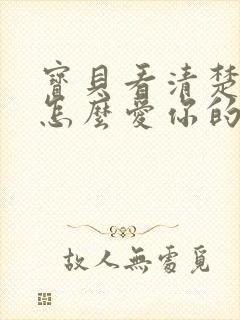 寶貝看清楚
怎麼愛你的
故人無處覓